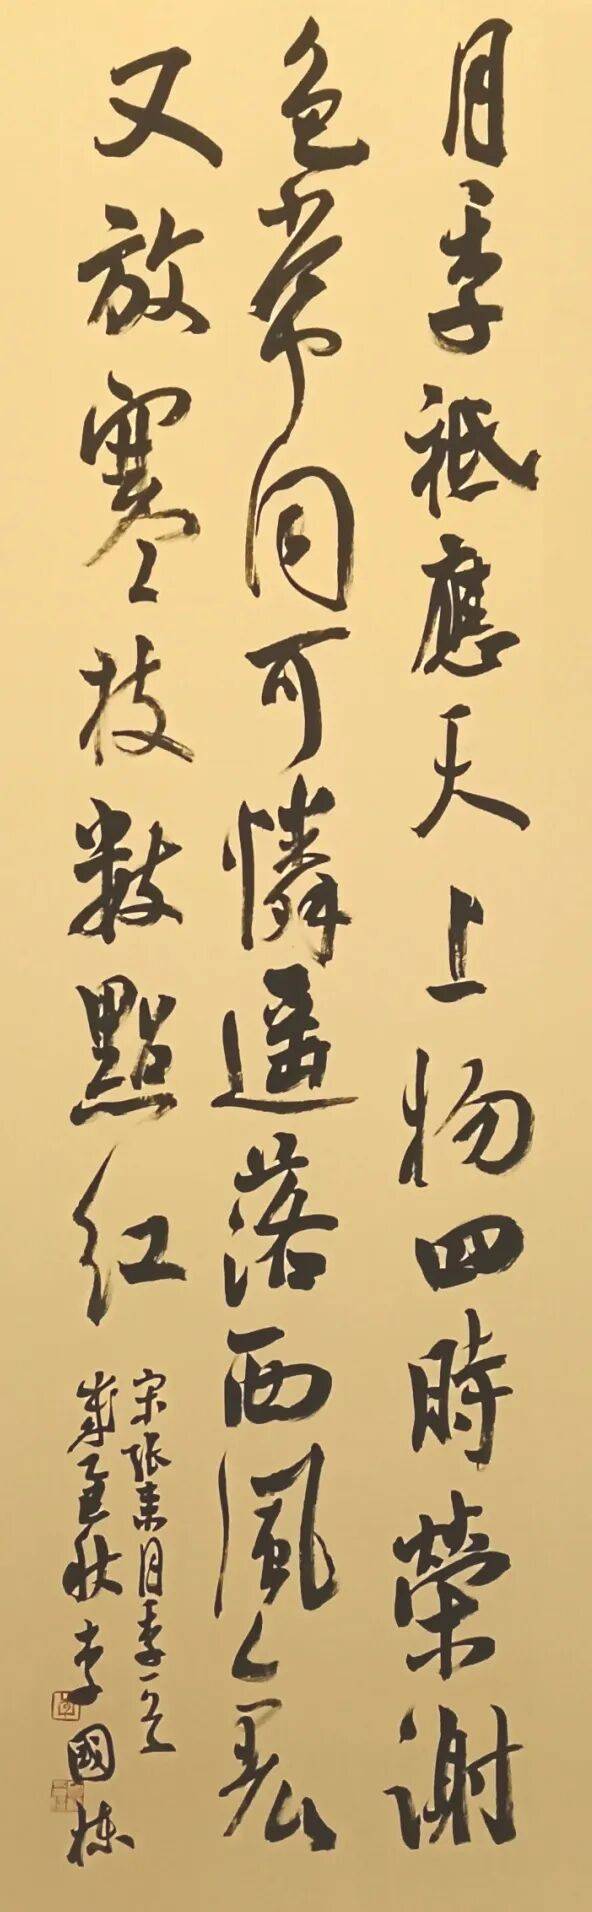 月季祗應天上物四時榮謝
色常同可憐遥落西風裏
又放寒枝數點紅
宋張耒月季一首
歲乙巳秋李國棟